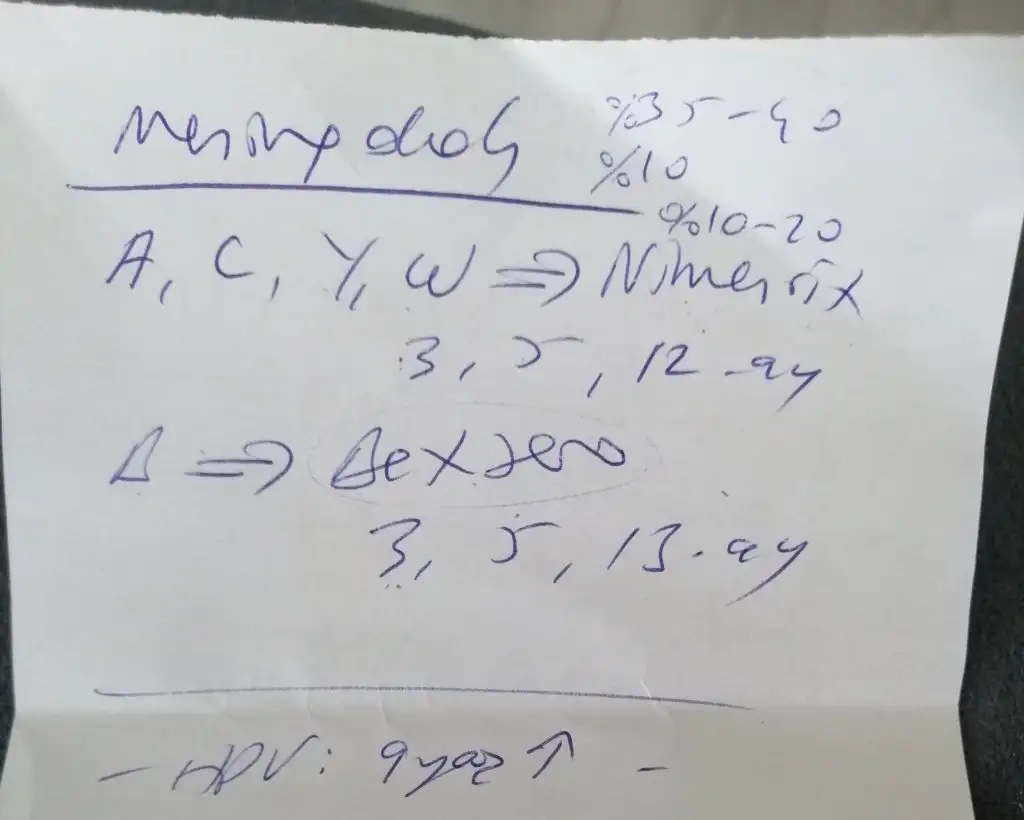 Meningokok %35-40
%10
%10-20
A, C, Y, W ⇒ Nimenrix
3, 5, 12.ay
B ⇒ Bexsero
3, 5, 13.ay
- HPV: 9 yaş ↑ -